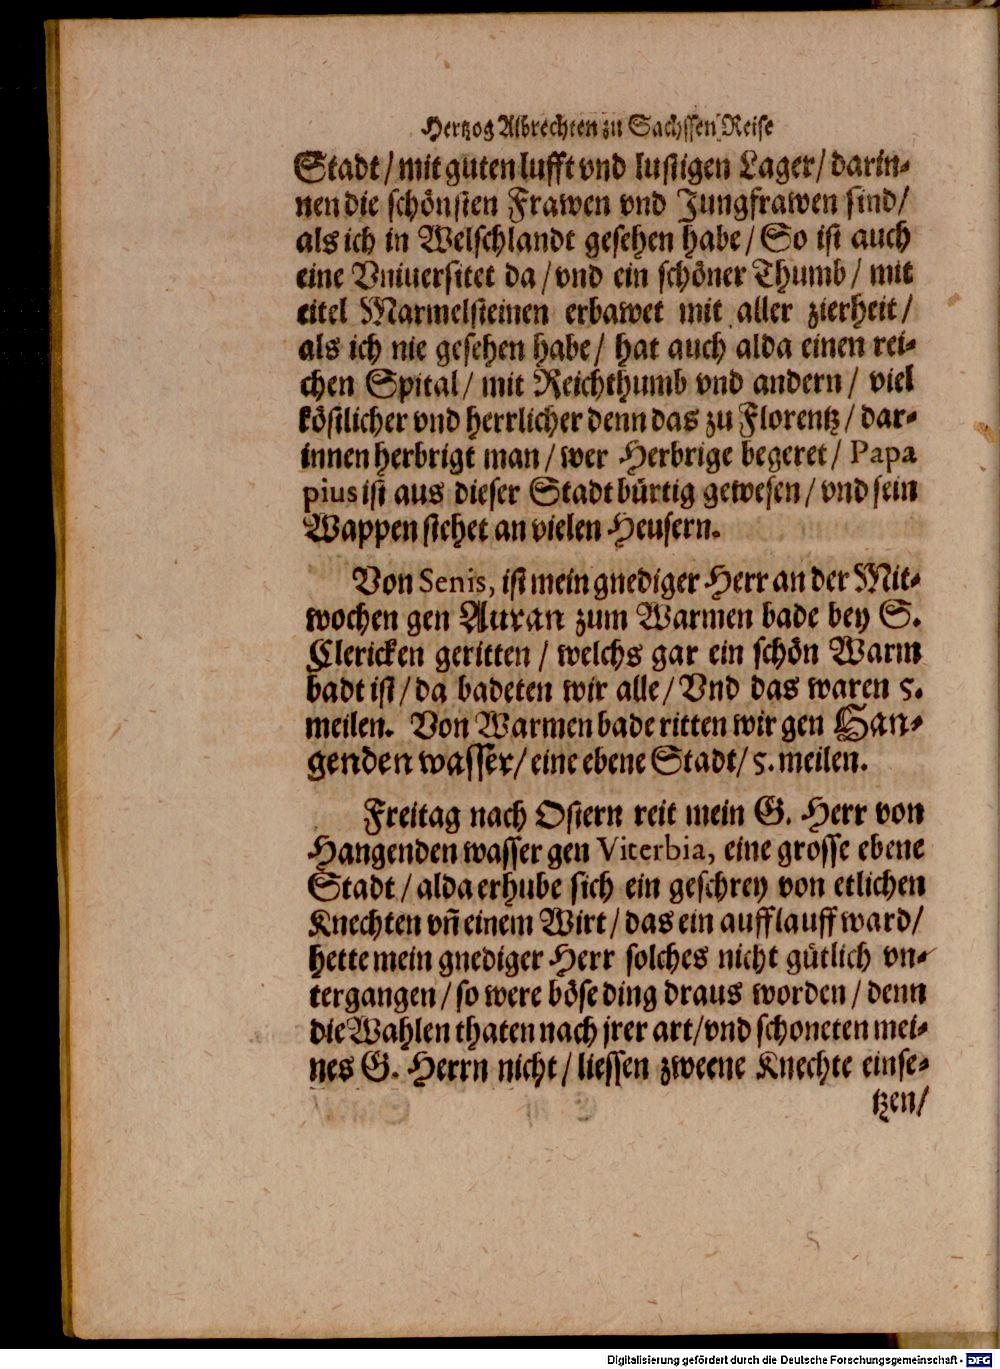 Hertzog Albrechten zu Sachssen Reise
Stadt / mit guten lufft vnd lustigen Lager / darin-
nen die schönsten Frawen vnd Jungfrawen sind /
als ich in Welschlandt gesehen habe / So ist auch
eine Vniuersitet da / vnd ein schöner Thumb / mit
eitel Marmelsteinen erbawet mit aller zierheit /
als ich nie gesehen habe / hat auch alda einen rei-
chen Spital / mit Reichthumb vnd andern / viel
köstlicher vnd herrlicher denn das zu Florentz / dar-
innen herbrigt man / wer Herbrige begeret / Papa
pius ist aus dieser Stadt bürtig gewesen / vnd sein
Wappen stehet an vielen Heusern.
Von Senis, ist mein gnediger Herr an der Mit-
wochen gen Auran zum Warmen bade bey S.
Clericken geritten / welchs gar ein schön Warm
badt ist / da badeten wir alle / Vnd das waren 5.
meilen. Von Warmen bade ritten wir gen Han-
genden wasser / eine ebene Stadt / 5. meilen.
Freitag nach Ostern reit mein G. Herr von
Hangenden wasser gen Viterbia, eine grosse ebene
Stadt / alda erhube sich ein geschrey von etlichen
Knechten vñ einem Wirt / das ein aufflauff ward /
hette mein gnediger Herr solches nicht gütlich vn-
tergangen / so were böse ding draus worden / denn
die Wahlen thaten nach jrer art / vnd schoneten mei-
nes G. Herrn nicht / liessen zweene Knechte einse-
tzen /
Digitalisierung gefördert durch die Deutsche Forschungsgemeinschaft - DFG